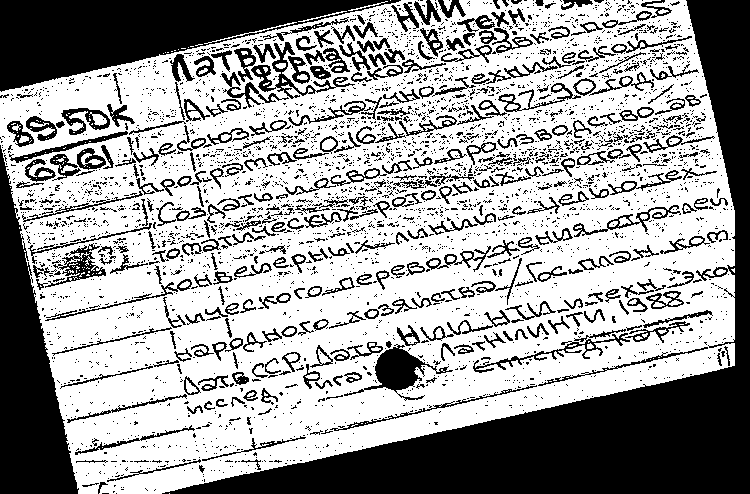 ЛАТВИЙСКИЙ НИИ
ИНФОРМАЦИИ И ТЕХН.-
СЛЕДОВАНИЙ (Рига).
89-50К
6861
Аналитическая справка по об-
щесоюзной научно-технической
программе 0.16.11 на 1987-90 годы
"Создать и освоить производство ав-
томатических роторных и роторно-
конвейерных линий с целью тех-
нического перевооружения отраслей
народного хозяйства" / Госплан. ком.
Латв.ССР, Латв. НИИ НТИ и техн.-экон.
исслед. - Рига: ЛатНИИНТИ, 1988.-
См.след.карт.